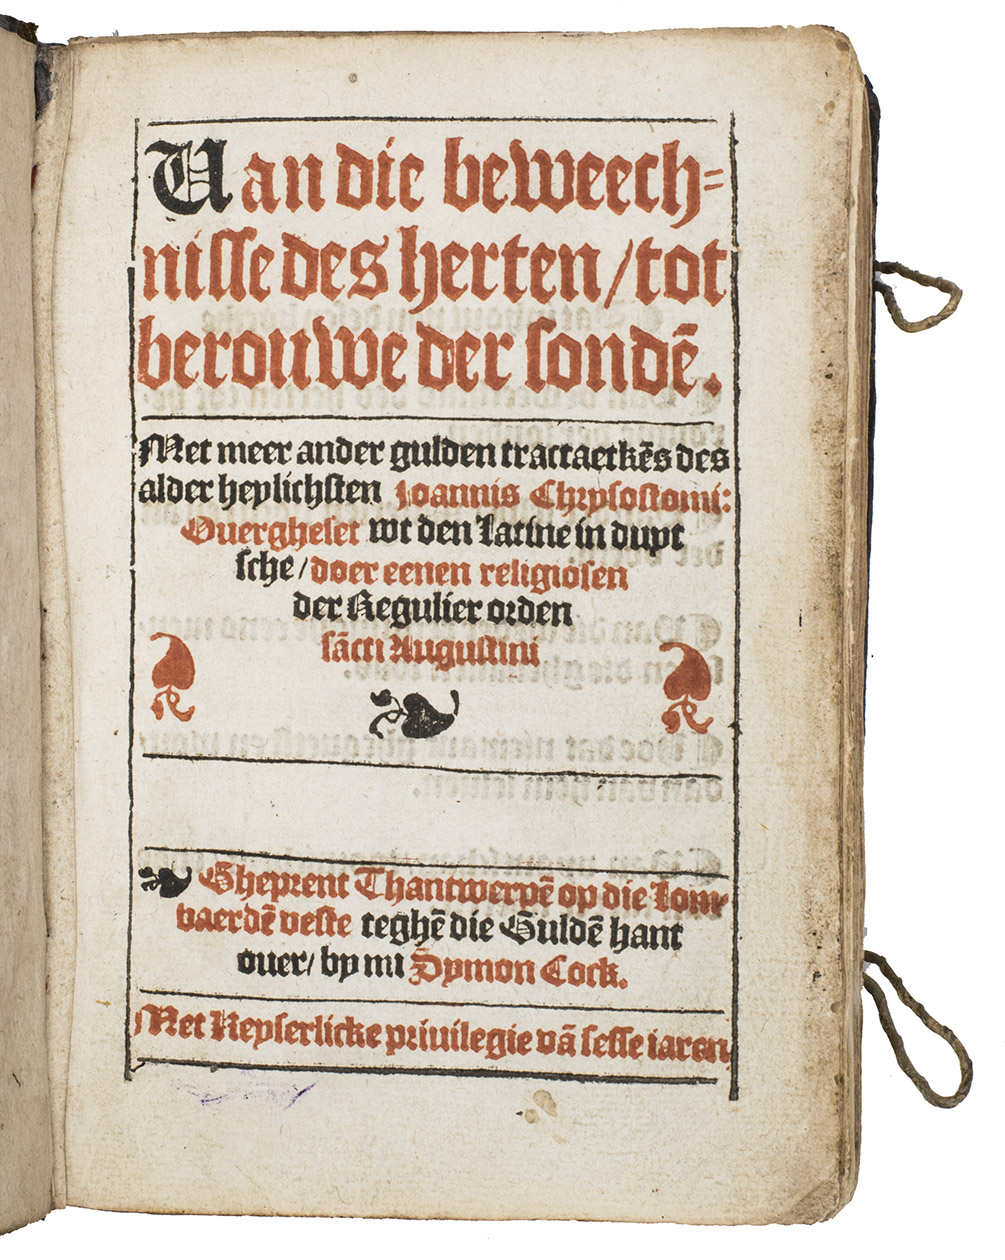 Uan die beweech⸗
nisse des herten / tot
berouwe der sondē.
Met meer ander gulden tractaetkēs des
alder heylichsten Joannis Chrysostomi:
Ouergheset wt den Latine in duyt
sche / doer eenen religiosen
der Regulier orden
sācti Augustini
Gheprent Thantwerpē op die Lom
vaerdē veste teghē die Guldē hant
ouer / by mi Symon Cock.
Met Keyserlicke priuilegie vā sesse iaren